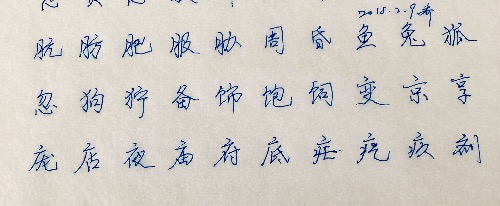 2018.2.9
肮 肪 肥 服 胁 周 昏 鱼 兔 狐
忽 狗 狞 备 饰 饱 饲 变 京 享
庞 店 夜 庙 府 底 疟 疙 疚 剂